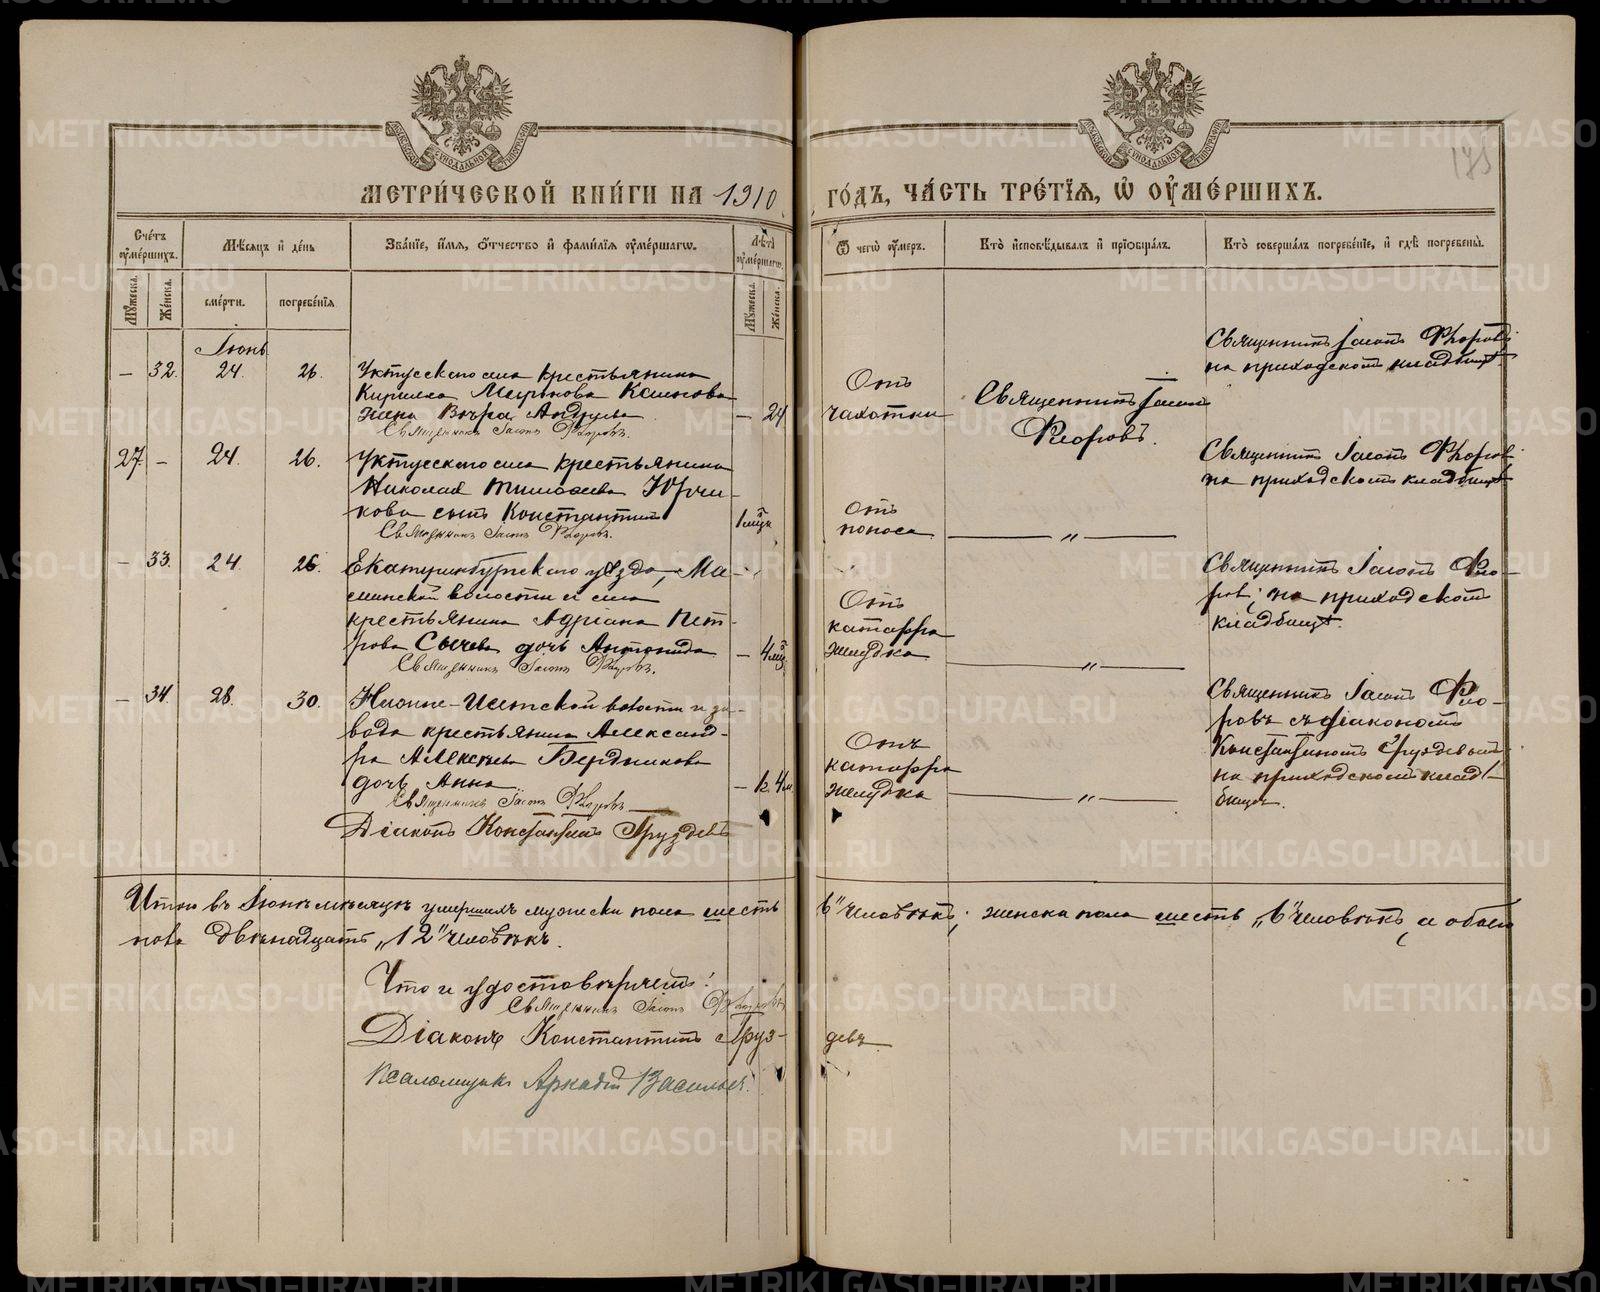 МЕТРИ́ЧЕСКОЙ КНИ́ГИ НА 1910 ГО́ДЪ, ЧА́СТЬ ТРЕ́ТІЯ, Ѡ ОУМЕ́РШИХЪ.
175
Сче́тъ оуме́ршихъ.
Мѣсяцъ и де́нь
Зва́ніе, и́мя, ѻ́тчество и фами́лія оуме́ршагѡ.
Лѣта оуме́ршагѡ.
Ѿ чегѡ̀ оуме́ръ.
Кто̀ исповѣ́дывалъ и приѡбща́лъ.
Кто̀ соверша́лъ погребе́ніе, и гдѣ̀ погребены̀.
Му́жеска.
Же́нска.
сме́рти.
погребе́нія
Му́жеска.
Же́нска.
Іюнь
— 32. 24. 26. Уктусскаго села крестьянина
Кирилла
жена Вѣра
— 24
Священникъ Іасонъ Флоровъ.
Отъ
чахотки
Священникъ Іасонъ
Флоровъ.
Священникъ Іасонъ Флоровъ
на приходскомъ кладбищѣ
27 — 24. 26. Уктусскаго села крестьянина
Николая Тимофеева Юрчи-
кова сынъ Константинъ
1 мѣц
Священникъ Іасонъ Флоровъ.
Отъ
поноса
— „ —
Священникъ Іасонъ Флоровъ
на приходскомъ кладбищѣ
— 33. 24. 26. Екатеринбургскаго уѣзда,
волости и села
крестьянина Адріана Пет-
рова Сычева дочь Антонида
— 4 мц
Священникъ Іасонъ Флоровъ.
Отъ
катарра
желудка
— „ —
Священникъ Іасонъ Фло-
ровъ, на приходскомъ
кладбищѣ.
— 34. 28. 30. Нижне-Исетской волости и за-
вода крестьянина Александ-
ра Алексѣева Бердникова
дочь Анна
Священникъ Іасонъ Флоровъ
Діаконъ Константинъ Груздевъ
Отъ
катарра
желудка
— „ —
Священникъ Іасонъ Фло-
ровъ съ діакономъ
Константиномъ Груздевымъ
на приходскомъ клад-
бищѣ.
Итого въ Іюнѣ мѣсяцѣ умершихъ мужеска пола шесть „6" человѣкъ; женска пола шесть „6" человѣкъ, а обоего
пола двѣнадцать „12" человѣкъ.
Что и удостовѣряемъ:
Священникъ Іасонъ Флоровъ
Діаконъ Константинъ Груз-девъ
Псаломщикъ Аркадій Васильев
METRIKI.GASO-URAL.RU